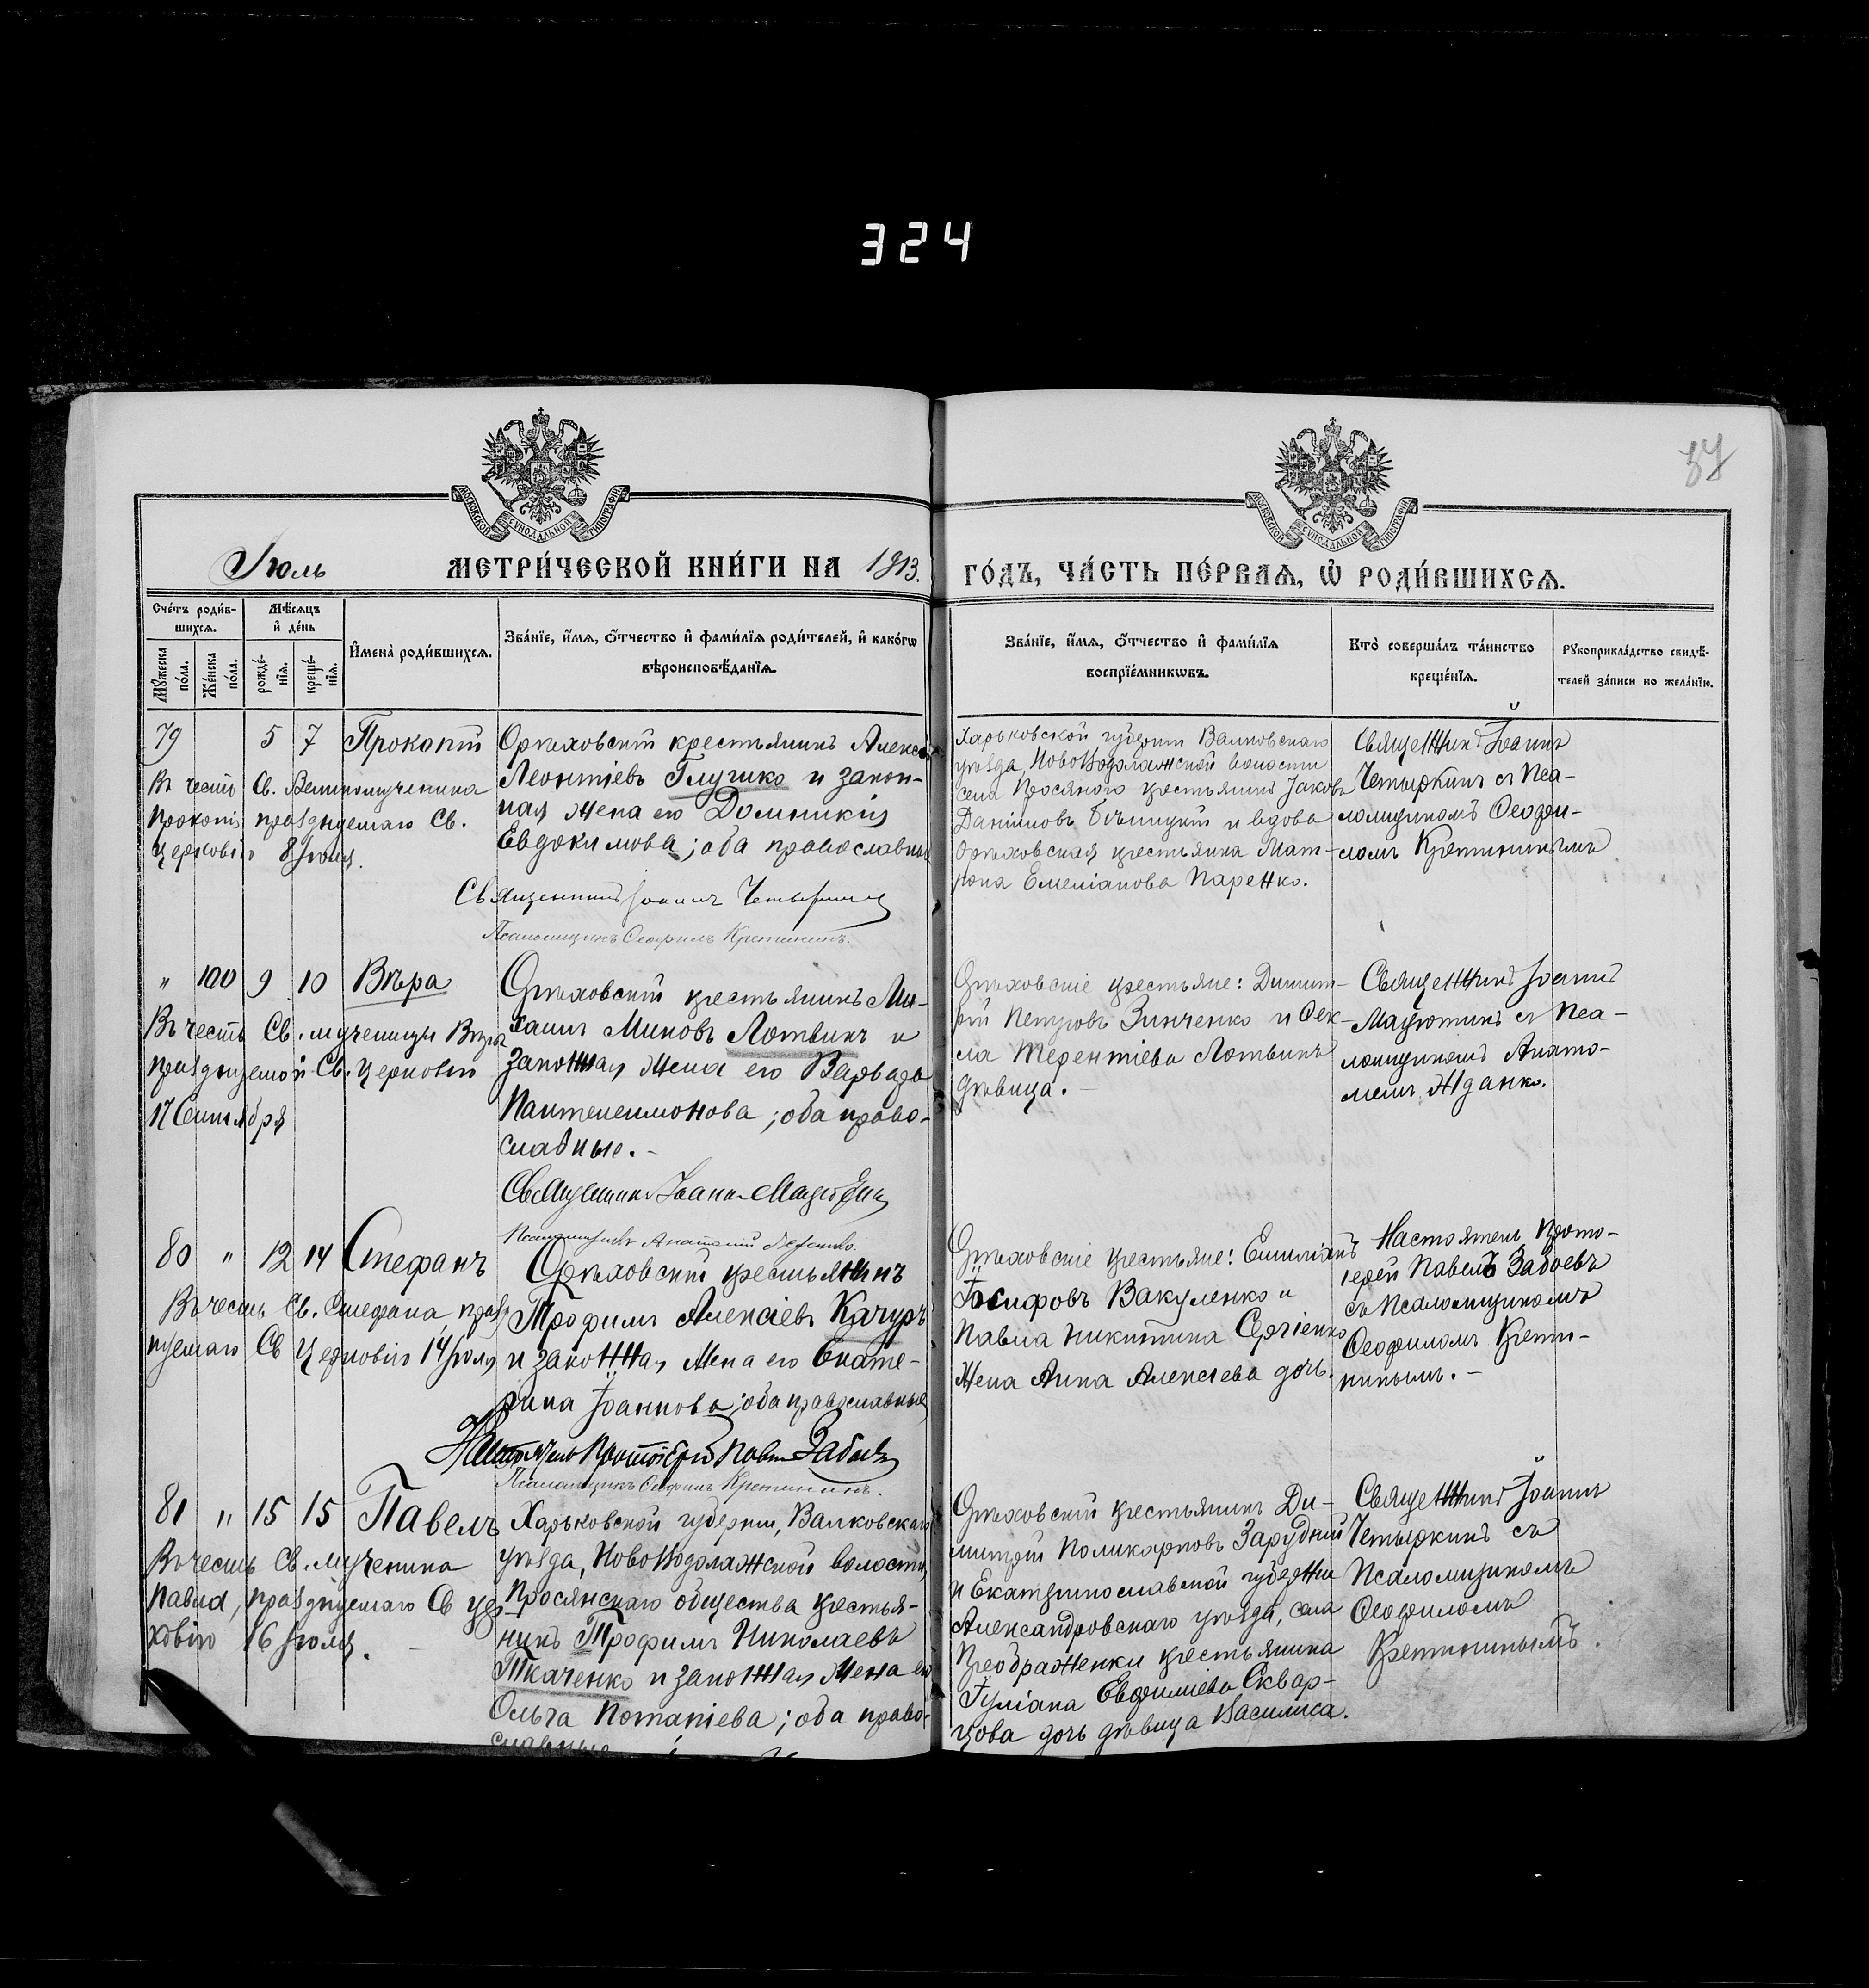 324
МОСКОВСКОЙ СѴНОДАЛЬНОЙ ТИПОГРАФІИ.
МОСКОВСКОЙ СѴНОДАЛЬНОЙ ТИПОГРАФІИ.
Іюль
МЕТРИ́ЧЕСКОЙ КНИ́ГИ НА 1913.
ГО́ДЪ, ЧА́СТЬ ПЕ́РВАЯ, Ѡ҆ РОДИ́ВШИХСЯ.
Сче́тъ роди́в-
шихся.
Му́жеска
по́ла.
Же́нска
по́ла.
Мѣ́сяцъ
и҆ де́нь
рожде́-
нїя.
креще́-
нїя.
И҆мена̀ роди́вшихся.
Зва́нїе, и҆́мя, ѻ҆́тчество и҆ фами́лїя роди́телей, и҆ како́гѡ
вѣроисповѣ́данїя.
Зва́нїе, и҆́мя, ѻ҆́тчество и҆ фами́лїя
воспрїе́мникѡвъ.
Кто̀ соверша́лъ та́инство
креще́нїя.
Рукоприкла́дство свидѣ́-
телей за́писи по жела́нїю.
79 5 7 Прокопій
Въ честь Св. Великомученика
Прокопія празднуемаго Св.
Церковію 8 Іюля.
Орѣховскій крестьянинъ Алексѣй
Леонтіевъ Глушко и закон-
ная жена его Домникія
Евдокимова; оба православные
Священникъ Іоаннъ Четыркинъ
Псаломщикъ Ѳеофилъ Кретининъ.
Харьковской губерніи Валковскаго
уѣзда, Ново Водолажской волости
села Просяного крестьянинъ Іаковъ
Даніиловъ и вдова
Орѣховская крестьянка Мат-
рона Емеліанова Паренко.
Священникъ Іоаннъ
Четыркинъ съ Пса-
ломщикомъ Ѳеофи-
ломъ Кретининымъ
" 100 9 10 Вѣра
Въ честь Св. мученицы Вѣры
празднуемой Св. Церковію
17 Сентября
Орѣховскій крестьянинъ Ми-
хаилъ Миновъ Лотвинъ и
законная жена его Варвара
Пантелеимонова; оба право-
славные.-
Священникъ Іоаннъ Мацютинъ
Псаломщикъ Анатолій
Орѣховскіе крестьяне: Димит-
рій Петровъ Зинченко и Ѳек-
ла Терентіева Лотвинъ
дѣвица.-
Священникъ Іоаннъ
Мацютинъ съ Пса-
ломщикомъ Анато-
ліемъ Жданко.
80 " 12 14 Стефанъ
Въ честь Св. Стефана, празд
нуемаго Св Церковію 14 Іюля
Орѣховскій крестьянинъ
Трофимъ Алексіевъ Качуръ
и законная жена его Екате-
рина Іоаннова; оба православные
Настоятель Протоіерей Павелъ Забоевъ
Псаломщикъ Ѳеофилъ Кретининъ.
Орѣховскіе крестьяне: Емиліанъ
Іосифовъ Вакуленко и
Павла Никитина Сергіенко
жена Анна Алексіева дочь.
Настоятель Прото-
іерей Павелъ Забоевъ
съ Псаломщикомъ
Ѳеофиломъ Крети-
нинымъ.-
81 " 15 15 Павелъ
Въ честь Св. мученика
Павла, празднуемаго Св Цер-
ковію 16 Іюля.
Харьковской губерніи, Валковскаго
уѣзда, Ново Водолажской волости,
Просянскаго общества крестья-
нинъ Трофимъ Николаевъ
Ткаченко и законная жена его
Ольга Потапіева; оба право-
славные
Орѣховскій крестьянинъ Ди-
митрій Поликарповъ Зарудній
и Екатеринославской губерніи
Александровскаго уѣзда, села
Преображенки крестьянина
Іуліана Евфиміева Сквар-
цова дочь дѣвица Василиса.
Священникъ Іоаннъ
Четыркинъ съ
Псаломщикомъ
Ѳеофиломъ
Кретининымъ.